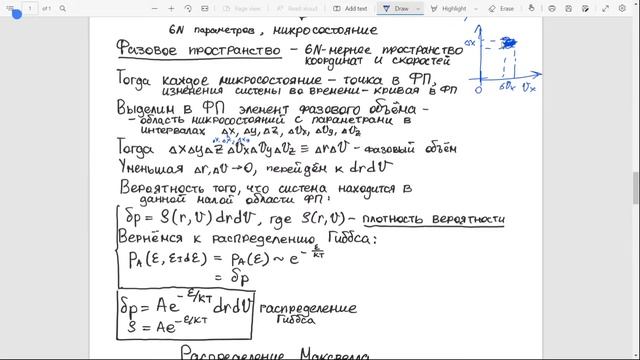 1 of 1
Add text
Draw
Highlight
Erase
6N параметров, микросостояние
Фазовое пространство – 6N-мерное пространство
координат и скоростей
Тогда каждое микросостояние – точка в ФП,
изменения системы во времени – кривая в ФП
Выделим в ФП элемент фазового объёма –
– область микросостояний с параметрами в
интервалах Δx, Δy, Δz, ΔVx, ΔVy, ΔVz
Тогда ΔxΔyΔz ΔVxΔVyΔVz ≡ ΔrΔV – фазовый объём
Уменьшая Δr,ΔV→0, перейдём к drdV
Вероятность того, что система находится в
данной малой области ФП:
δp = ρ(r,V)drdV, где ρ(r,V) – плотность вероятности
Вернёмся к распределению Гиббса:
PA(ε, ε+dε) = PA(ε) ~ e^(-ε/kT)
= δp
δp = Ae^(-ε/kT)drdV распределение
ρ = Ae^(-ε/kT) Гиббса
Распределение Максвелла
Δx
0 ΔVx Vx